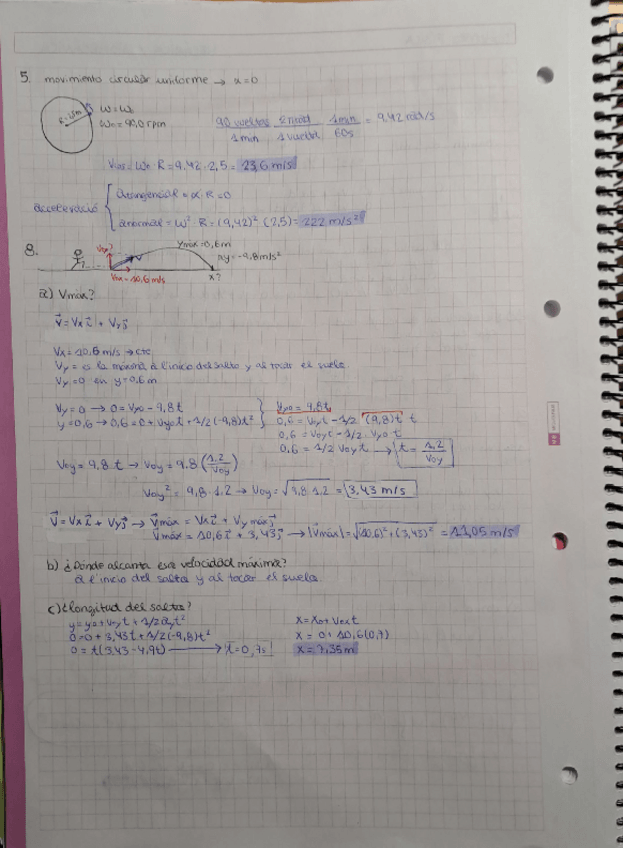 5. movimiento circular uniforme → α=0
R=2,5m
ω=ω₀
ω₀=90,0rpm
90 vueltas / 1min · 2π rad / 1 vuelta · 1min / 60s = 9,42 rad/s
V = ω₀·R=9,42·2,5= 23,6 m/s
acceleració
atangencial = α·R=0
anormal = ω²·R=(9,42)²·(2,5)= 222 m/s²
8.
Ymáx=0,6m
ay=-9,8m/s²
Vox=10,6m/s
x?
a) Vmàx?
v⃗=Vx i⃗ + Vy j⃗
Vx=10,6m/s → cte
Vy = a la máxima a l'inicio del salto y al tocar el suelo
Vy=0 en y=0,6m
Vy=0 → 0=Vyo-9,8t
y=0,6 → 0,6=0+Vyo t+1/2(-9,8)t²
Vyo = 9,8t
0,6=Voyt-1/2 (9,8)t t
0,6=Voyt-1/2·Vyo t
0,6=1/2 Voyt → t=1,2/Voy
Voy=9,8t → Voy=9,8(1,2/Voy)
Voy²=9,8·1,2 → Voy=√9,8·1,2 = 3,43 m/s
v⃗=Vx i⃗ + Vy j⃗ → v⃗máx=Vx i⃗ + Vy máx j⃗
v⃗máx=10,6 i⃗ + 3,43 j⃗ → |v⃗máx|=√(10,6)²+(3,43)² = 11,05 m/s
b) ¿Dónde alcanta esa velocidad máxima?
a l'inicio del salto y al tocar el suelo
c) ¿Longitud del salto?
y=yo+Voyt+1/2ayt²
0=0+3,43t+1/2(-9,8)t²
0=t(3,43-4,9t) → t=0,7s
x=xo+Voxt
x=0+10,6(0,7)
x=7,35m